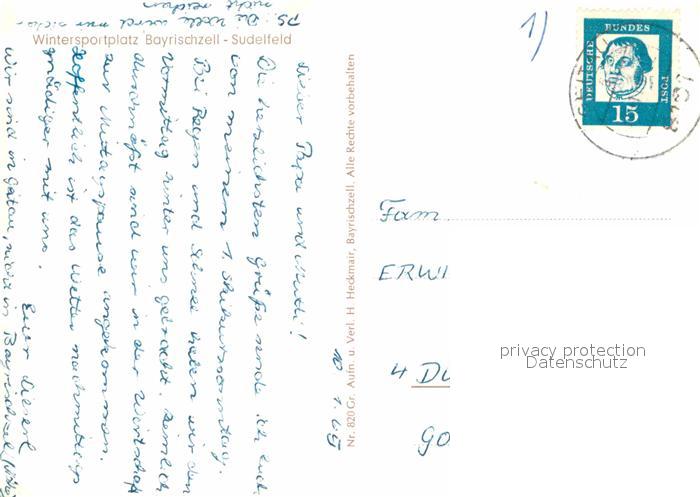 PS. Die
nicht
Wintersportplatz Bayrischzell - Sudelfeld
Lieber Papa und Mutti!
Die herzlichsten Grüße sende ich Euch
von meinem 1. Skikurssonntag.
Bei Regen und Schnee haben wir den
Vormittag hinter uns gebracht. Ziemlich
durchnäßt sind wir in der Wirtschaft
zur Mittagspause angekommen.
Hoffentlich ist das Wetter nachmittags
gnädiger mit uns.
Euer Dieserl
Wir sind in Gitau, nicht in Bayrischzell
10.1.65
Nr. 820 Gr. Aufn. u. Verl. H Heckmair, Bayrischzell. Alle Rechte vorbehalten
1)
DEUTSCHE BUNDES POST
15
Fam.
ERWI
4 DU
90
privacy protection
Datenschutz